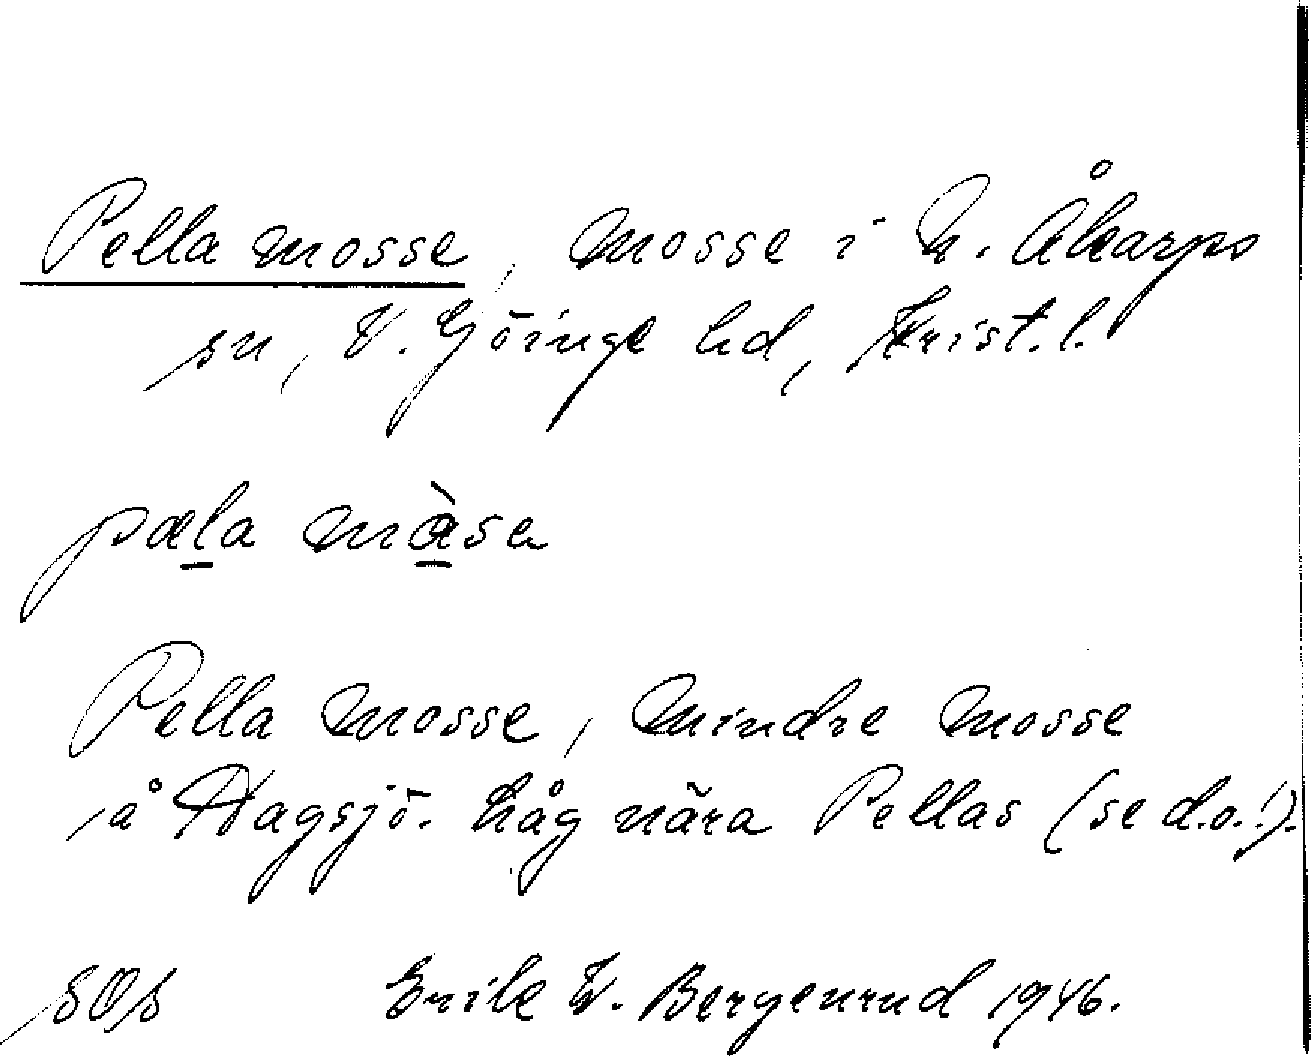 Pella mosse, mosse i N. Åkarps
sn, V. Göinge hd, Krist. l.
pæla màsa
Pella mosse, mindre mosse
å Hagsjö. håg nära Pellas (se d.o.!).
SOS Erik W. Bergenrud 1946.